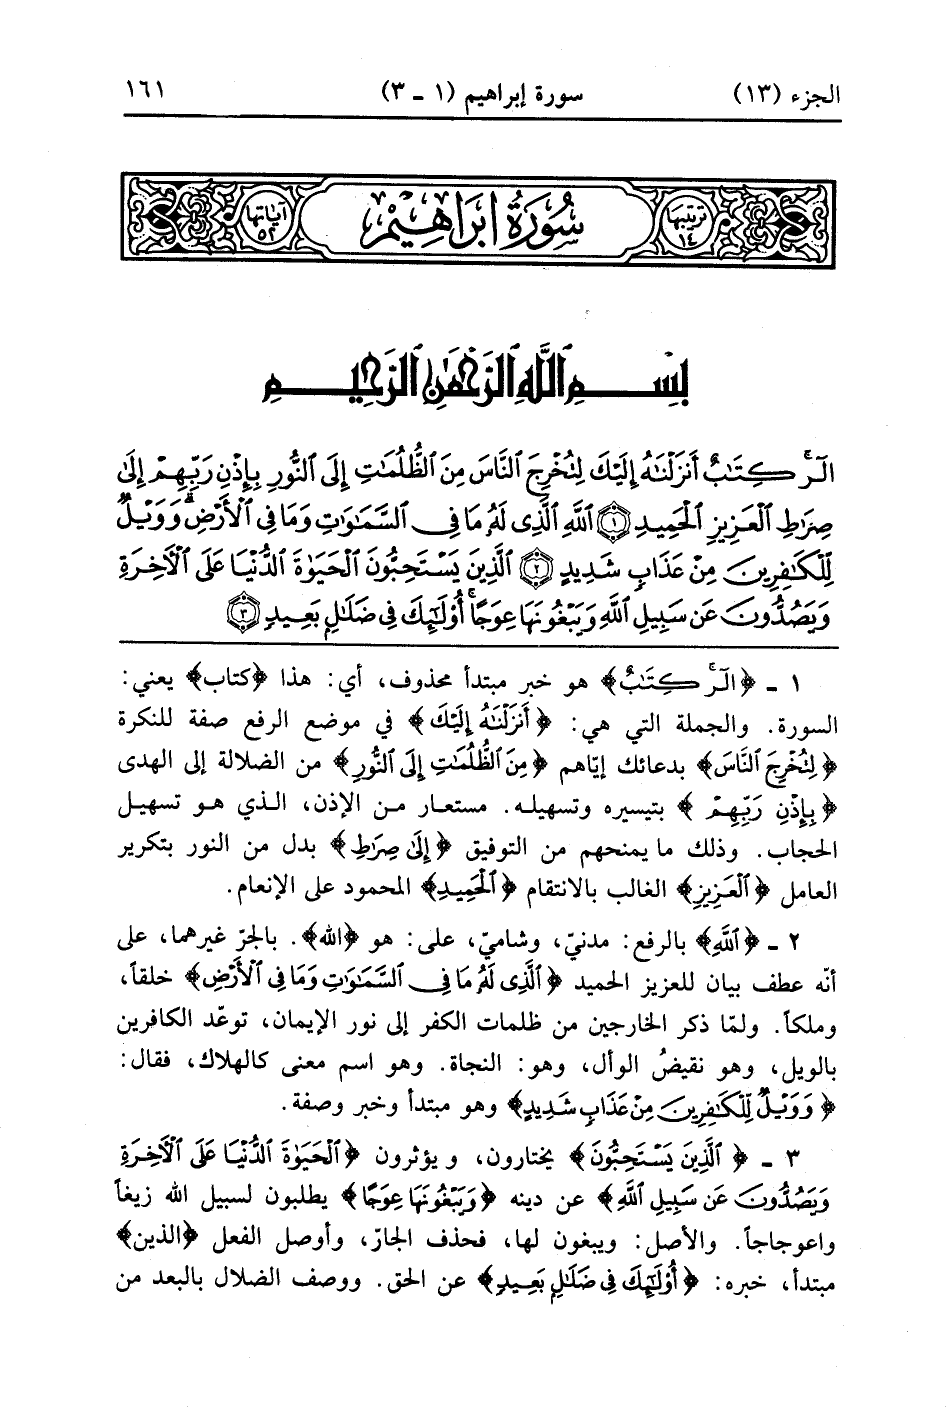 الجزء (١٣) سورة إبراهيم (١ ـ ٣) ١٦١
ترتيبها ١٤ سُورَةُ ابْرَاهِيْمَ آياتها ٥٢
بِسْمِ ٱللَّهِ ٱلرَّحْمَٰنِ ٱلرَّحِيمِ
الٓرۚ كِتَٰبٌ أَنزَلْنَٰهُ إِلَيْكَ لِتُخْرِجَ ٱلنَّاسَ مِنَ ٱلظُّلُمَٰتِ إِلَى ٱلنُّورِ بِإِذْنِ رَبِّهِمْ إِلَىٰ
صِرَٰطِ ٱلْعَزِيزِ ٱلْحَمِيدِ ﴿١﴾ ٱللَّهِ ٱلَّذِى لَهُۥ مَا فِى ٱلسَّمَٰوَٰتِ وَمَا فِى ٱلْأَرْضِۗ وَوَيْلٌ
لِّلْكَٰفِرِينَ مِنْ عَذَابٍ شَدِيدٍ ﴿٢﴾ ٱلَّذِينَ يَسْتَحِبُّونَ ٱلْحَيَوٰةَ ٱلدُّنْيَا عَلَى ٱلْءَاخِرَةِ
وَيَصُدُّونَ عَن سَبِيلِ ٱللَّهِ وَيَبْغُونَهَا عِوَجًاۚ أُو۟لَٰٓئِكَ فِى ضَلَٰلٍۭ بَعِيدٍ ﴿٣﴾
١ ـ ﴿الٓرۚ كِتَٰبٌ﴾ هو خبر مبتدأ محذوف، أي: هذا ﴿كتاب﴾ يعني:
السورة. والجملة التي هي: ﴿أَنزَلْنَٰهُ إِلَيْكَ﴾ في موضع الرفع صفة للنكرة
﴿لِتُخْرِجَ ٱلنَّاسَ﴾ بدعائك إيّاهم ﴿مِنَ ٱلظُّلُمَٰتِ إِلَى ٱلنُّورِ﴾ من الضلالة إلى الهدى
﴿بِإِذْنِ رَبِّهِمْ﴾ بتيسيره وتسهيله. مستعار من الإذن، الذي هو تسهيل
الحجاب. وذلك ما يمنحهم من التوفيق ﴿إِلَىٰ صِرَٰطِ﴾ بدل من النور بتكرير
العامل ﴿ٱلْعَزِيزِ﴾ الغالب بالانتقام ﴿ٱلْحَمِيدِ﴾ المحمود على الإنعام.
٢ ـ ﴿ٱللَّهِ﴾ بالرفع: مدنيّ، وشاميّ، على: هو ﴿الله﴾. بالجرّ غيرهما، على
أنّه عطف بيان للعزيز الحميد ﴿ٱلَّذِى لَهُۥ مَا فِى ٱلسَّمَٰوَٰتِ وَمَا فِى ٱلْأَرْضِ﴾ خلقاً،
وملكاً. ولمّا ذكر الخارجين من ظلمات الكفر إلى نور الإيمان، توعّد الكافرين
بالويل، وهو نقيضُ الوأل، وهو: النجاة. وهو اسم معنى كالهلاك، فقال:
﴿وَوَيْلٌ لِّلْكَٰفِرِينَ مِنْ عَذَابٍ شَدِيدٍ﴾ وهو مبتدأ وخبر وصفة.
٣ ـ ﴿ٱلَّذِينَ يَسْتَحِبُّونَ﴾ يختارون، ويؤثرون ﴿ٱلْحَيَوٰةَ ٱلدُّنْيَا عَلَى ٱلْءَاخِرَةِ
وَيَصُدُّونَ عَن سَبِيلِ ٱللَّهِ﴾ عن دينه ﴿وَيَبْغُونَهَا عِوَجًا﴾ يطلبون لسبيل الله زيغاً
واعوجاجاً. والأصل: ويبغون لها، فحذف الجارّ، وأوصل الفعل ﴿الذين﴾
مبتدأ، خبره: ﴿أُو۟لَٰٓئِكَ فِى ضَلَٰلٍۭ بَعِيدٍ﴾ عن الحق. ووصف الضلال بالبعد من